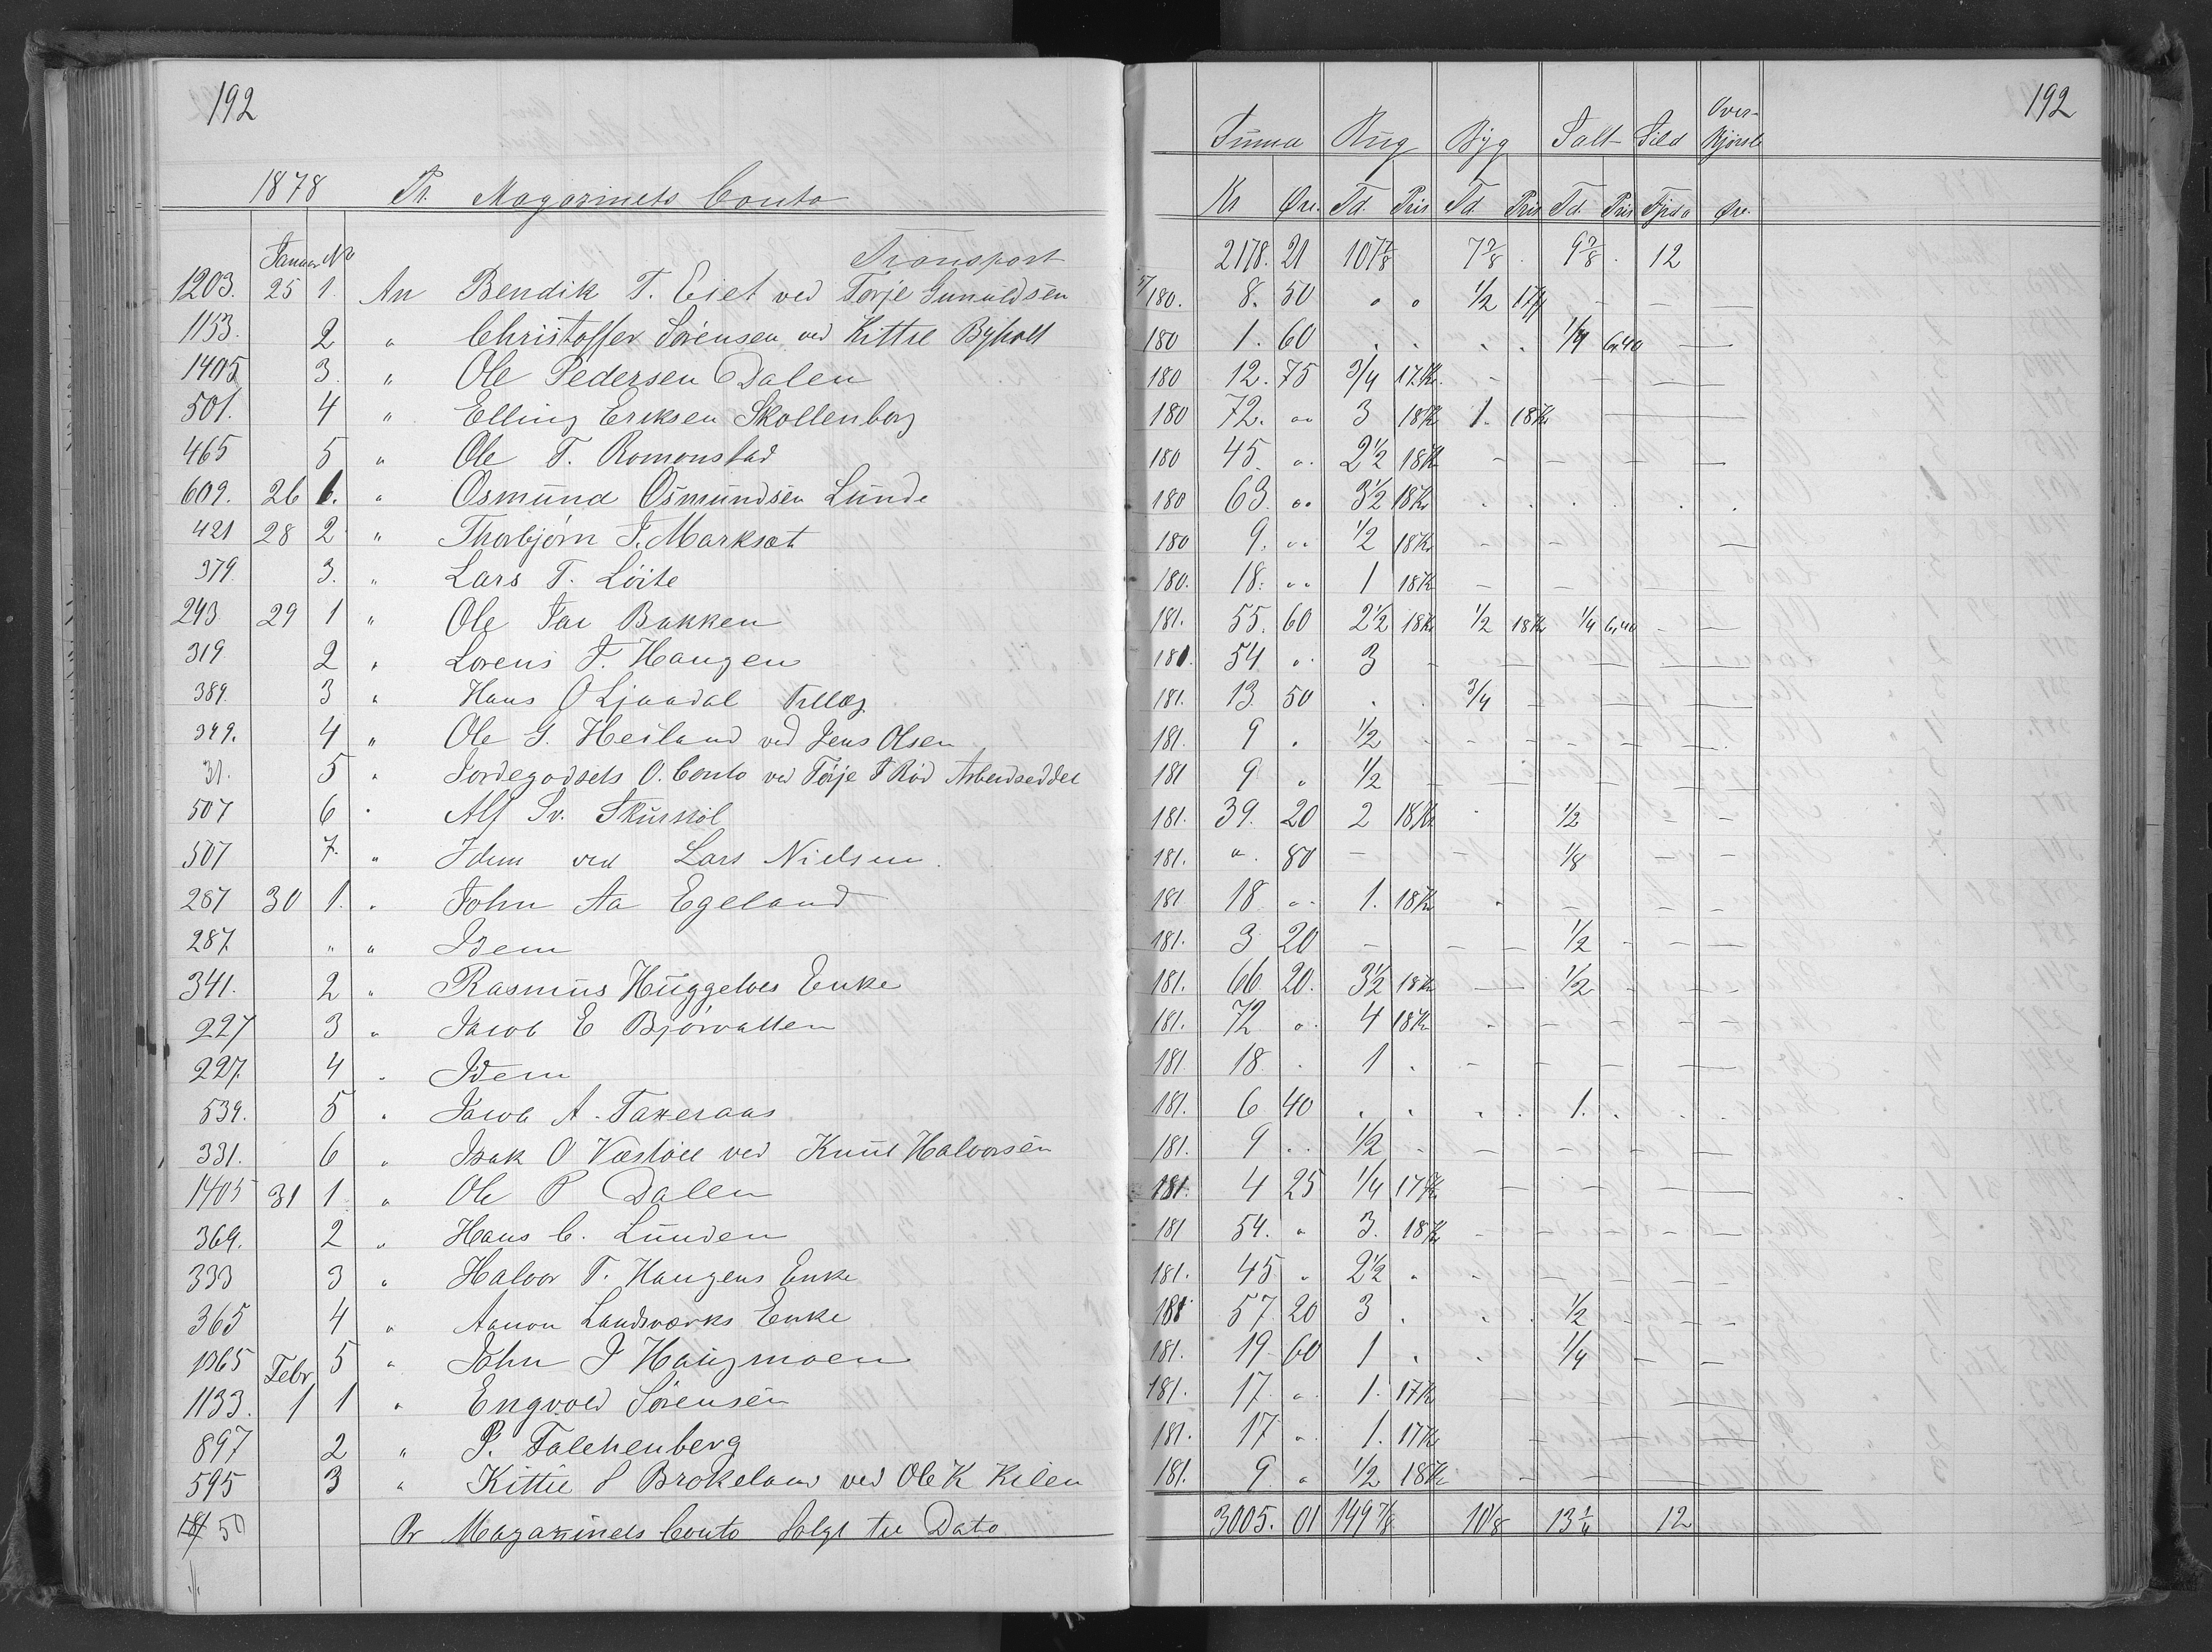 192
1878 Pr. Magazinets Conto
Januar No Transport
1203. 25 1. An Bendik T. Eiet ved Terje Gunuldsen
1153. 2 " Christoffer Sørensen ved Kittil Byholt
1405 3. " Ole Pedersen Dalen
501. 4 " Elling Eriksen Skollenborg
465 5 " Ole T. Romonstad
609. 26 1. " Osmund Osmundsen Lunde
421 28 2 " Thorbjørn J. Marksæt
379. 3. " Lars T. Løite
293 29 1 " Ole Bakken
319. 2 " Lorens T. Haugen
389. 3 " Hans O Ljaadal Tillæg
349. 4 " Ole G. Heiland ved Jens Olsen
31. 5 " Jordegodsets O. Conto ved Terje T Rød Arbeidseddel
507 6 " Alf Sv.
507 7. " Idem ved Lars Nielsen.
287 30 1. " John Aa Egeland
287. " " Idem
341. 2 " Rasmus Huggelves Enke
227 3 " Jacob E Bjørvatten
227. 4 " Idem
539. 5 " Jacob A. Takeraas
331. 6 " Isak O Væstøl ved Knut Halvorsen
1405 31 1 " Ole P Dalen
369. 2 " Hans C. Lunden
333 3 " Halvor T. Haugens Enke
365 4 " Aanon Landsværks Enke
1065 5 " John J Haugmoen
Febr
1133. 1 1 " Engvold Sørensen
897 2 " P. Falchenberg
595 3 " Kittil S Brokeland ved Ole K Kilen
181/50 Pr Magazinets Conto Solgt til Dato
192
Over-
Summa Rug Byg Salt Sild
Kr Øre. Td. Pris Td. Pris Td. Pris Øre.
2178. 21 107 7/8 7 3/8 9 3/8 12
180. 8. 50 " " 1/2 17Kr - - -
180 1. 60 . . . . 1/4 6.40 -
180 12. 75 3/4 17Kr. - - - -
180 72. " 3 18Kr 1. 18Kr - -
180 45. " 2 1/2 18Kr - - - -
180 63. " 3 1/2 18Kr . . . . .
180 9. " 1/2 18Kr - - -
180. 18. " 1 18Kr - - -
181. 55. 60 2 1/2 18Kr 1/2 18Kr 1/4 6,40 - -
181. 54 " 3 - - - - -
181. 13. 50 . . 3/4 - - -
181. 9 . 1/2 - - - - -
181 9 " 1/2 - - - -
181. 39. 20 2 18Kr . 1/2 - -
181. " 80 - - 1/8 - -
181 18 " 1. 18Kr " - - -
181. 3 20 - - - 1/2 - - -
181. 66 20. 3 1/2 18Kr - 1/2 - -
181. 72 " 4 18Kr - - - - -
181 18. . 1 . - - - -
181. 6 40 . . . . 1. . . .
181. 9 " 1/2 - - - - -
181. 4 25 1/4 17Kr - - - -
181 54. " 3. 18Kr - - - - -
181. 45 " 2 1/2 " - - - -
181 57. 20 3 . . . 1/2 - - -
181. 19 60 1 . . 1/4 - -
181. 17. " 1. 17Kr - - - -
181. 17 " 1. 17Kr - - - -
181. 9. " 1/2 18Kr - - - -
3005. 01 149 7/8 10 1/8 13 1/4 12